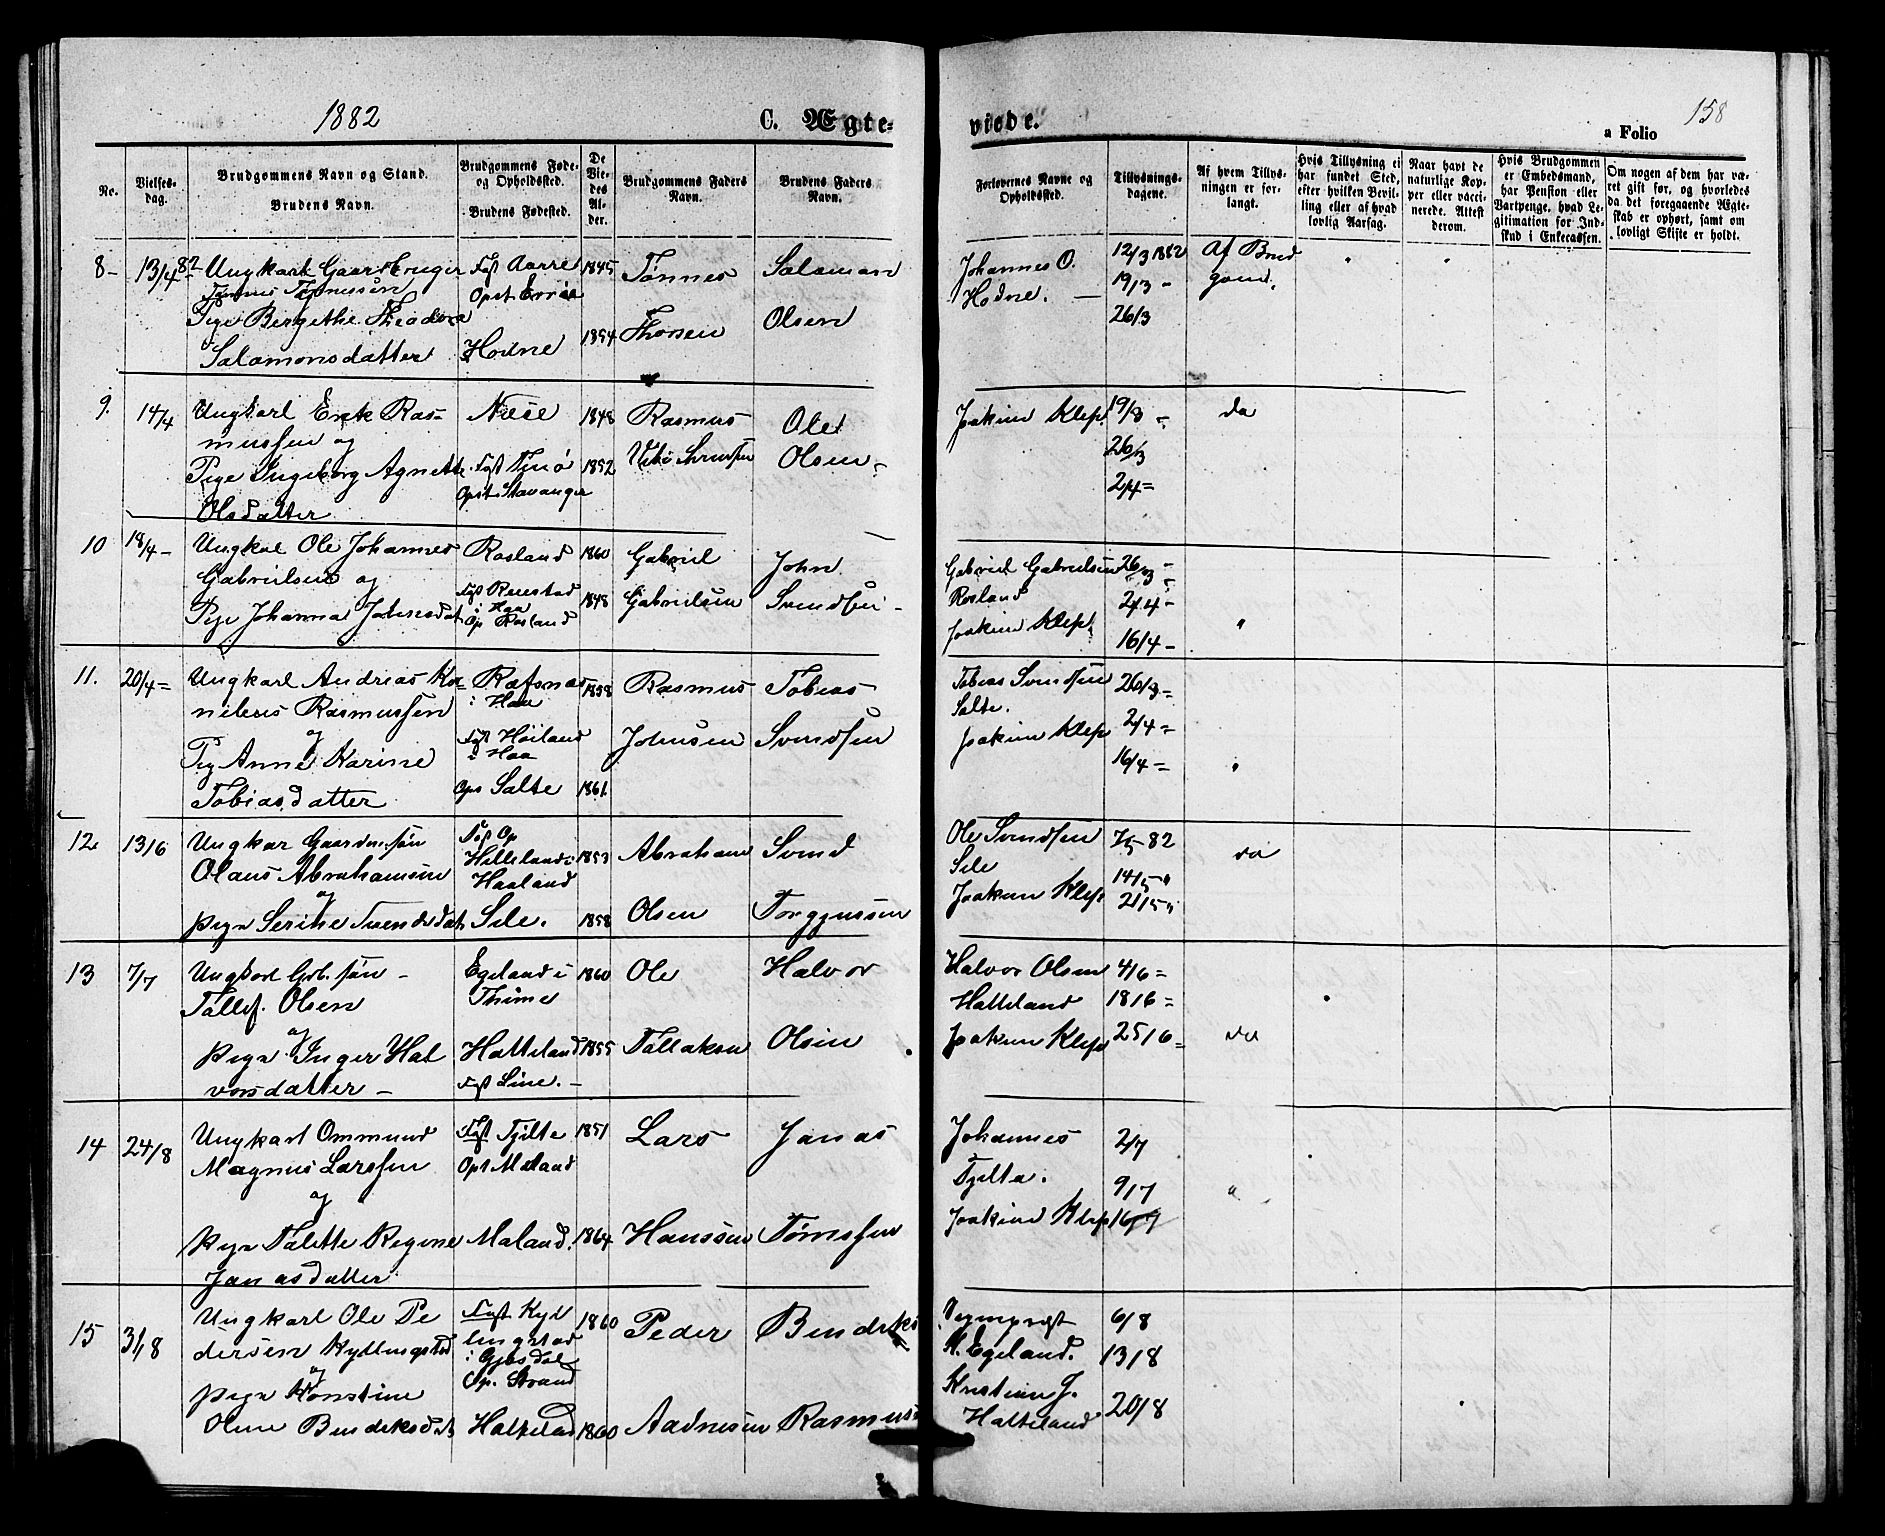 1882
C. Ægte-
viede.
158
a Folio
No.
Vielses-
dag.
Brudgommens Navn og Stand.
Brudens Navn.
Brudgommens Føde-
og Opholdssted.
Brudens Fødested.
De
Vie-
des
Al-
der.
Brudgommens Faders
Navn.
Brudens Faders
Navn.
Forlovernes Navne og
Opholdssted.
Tillysnings-
dagene.
Af hvem Tillys-
ningen er for-
langt.
Hvis Tillysning ei
har fundet Sted,
efter hvilken Bevil-
ling eller af hvad
lovlig Aarsag.
Naar havt de
naturlige Kop-
per eller vacci-
nerede. Attest
derom.
Hvis Brudgommen
er Embedsmand,
har Pension eller
Vartpenge, hvad Le-
gitimation for Ind-
skud i Enkecassen.
Om nogen af dem har væ-
ret gift før, og hvorledes
da det foregaaende Ægte-
skab er ophørt, samt om
lovligt Skifte er holdt.
8-
13/4 82
Ungkarl Gaardbruger
Tønnes Tønnessen
Pige Bergethe Theodora
Salamonsdatter
Født Aarre
Opst
Hodne
1845
1854
Tønnes
Thorsen
Salaman
Olsen
Johannes O.
Hodne. -
12/3 1882
19/3 -
26/3
Af Brud
gom.
9.
14/4
Ungkarl Erik Ras-
mussen og
Pige Ingeborg Agnette
Olsdatter
Næse
Født Tjnø
Opst Stavanger
1848
1852
Rasmus
Ole
Olsen -
Joakim Klep.
19/3 -
26/3
2/4 =
da
10
18/4 -
Ungkal Ole Johannes
Gabrielsen og
Pige Johanna Johnsdat
Rosland
Født
i Haa
Op Rosland
1860
1848
Gabriel
Gabrielsen
John
Svendsen -
Gabriel Gabrielsen
Rosland
Joakim Klep.
26/3 -
2/4 -
16/4 -
"
11.
20/4 =
Ungkarl Andreas Kor-
nileus Rasmussen
og
Pig Anne Karine
Tobiasdatter
Ræfsnæs
i Haa
Født Høiland
i Haa
Ops Salte
1858
1861
Rasmus
Johnsen
Tobias
Svendsen
Tobias Svendsen
Salte.
Joakim Klep
26/3 =
2/4 =
16/4 =
"
12
13/6
Ungkar Gaardmsøn
Olaus Abrahamsen
og
Pign Serine Svendsdat
Født Op
Helleland i
Haaland
Sele.
1853
1858
Abraham
Olsen
Svend
Torggussen
Ole Svendsen
Sele
Joakim Klep
7/5 82
14/5 "
21/5 "
da
13
7/7
Ungkarl Grb. søn -
Tollef. Olsen
og
Pign Inger Hal
vorsdatter -
Egeland i
Thime
Hatteland
Født Line. -
1860
1855
Ole
Tollaksen
Halvor
Olsen
Halvor Olsen
Hatteland
Joakim Klep
4/6 =
18/6 =
25/6 =
da
14
24/8
Ungkarl Ommund
Magnus Larssen
og
Pign Talette Regine
Janasdatter
Født Tjelte
Opt Maland
Maland.
1851
1864
Lars
Hanssen
Janas
Tønnssen
Johannes
Tjelta.
Joakim Klep
2/7
9/7
16/7
"
15
31/8
Ungkarl Ole Pe
dersen Kyllingstad
og
Pign Konstine
Oline Bendiksdat
Født Kyl
lingstad
i Gjesdal
Op. Strand
Hatteland
1860
1860
Peder
Aadnesen
Bendiks
Rasmus
H. Egeland.
Kristian J.
Hatteland
6/8
13/8
20/8